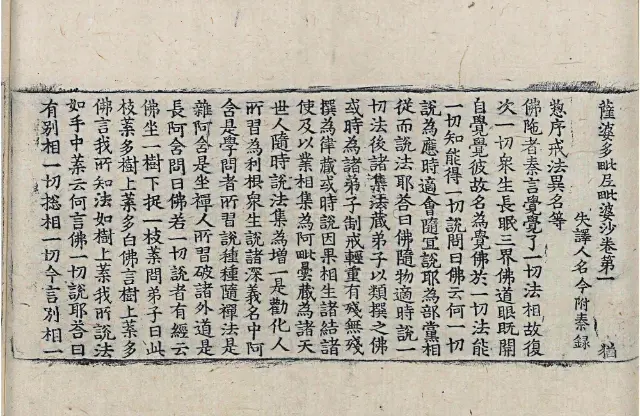 薩婆多毗尼毗婆沙卷第一
猶
失譯人名今附秦録
惣序戒法異名等
佛陁者秦言覺覺了一切法相故復
次一切衆生長眠三界佛道眼既開
自覺覺彼故名為覺佛於一切法能
一切知能得一切說問曰佛云何一切
說為應時適會隨冝說耶為部黨相
從而說法耶荅曰佛隨物適時說一
切法後諸集法蔵弟子以類撰之佛
或時為諸弟子制戒輕重有殘無殘
撰為律蔵或時說因果相生諸結諸
使及以業相集為阿毗曇蔵為諸天
世人隨時說法集為增一是勸化人
所習為利根衆生說諸深義名中阿
含是學問者所習說種種隨禪法是
雜阿含是坐禪人所習破諸外道是
長阿含問曰佛若一切說者有經云
佛坐一樹下捉一枝葉問弟子曰此
枝葉多樹上葉多白佛言樹上葉多
佛言我所知法如樹上葉我所說法
如手中葉云何言佛一切說耶荅曰
有別相一切揔相一切今言別相一